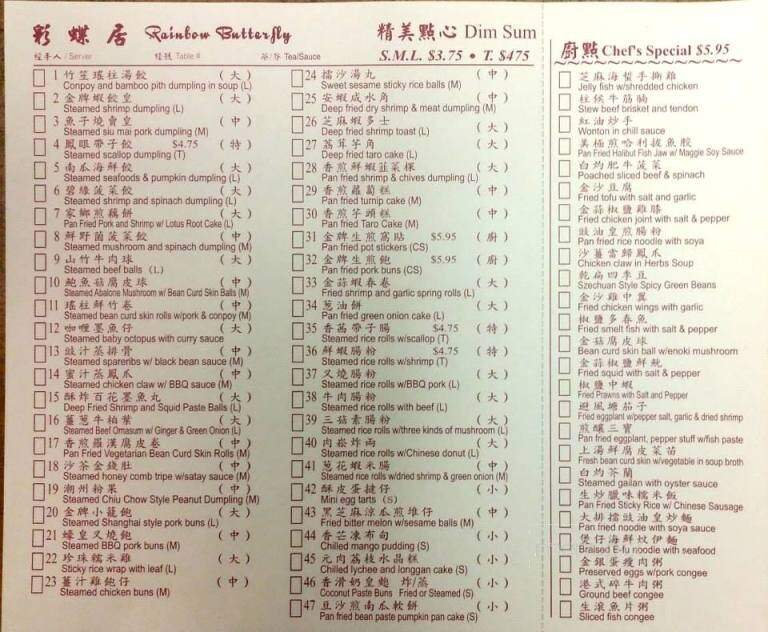 彩蝶居 Rainbow Butterfly
精美點心 Dim Sum
經手人 / Server
檯號 Table #
茶/芥 Tea/Sauce
S.M.L. $3.75 • T. $475
1 竹笙瑤柱湯餃 (大)
Conpoy and bamboo pith dumpling in soup (L)
2 金牌蝦餃皇 (大)
Steamed shrimp dumpling (L)
3 魚子燒賣皇 (中)
Steamed siu mai pork dumpling (M)
4 鳳眼帶子餃 $4.75 (特)
Steamed scallop dumpling (T)
5 南瓜海鮮餃 (大)
Steamed seafoods & pumpkin dumpling (L)
6 碧綠菠菜餃 (大)
Steamed shrimp and spinach dumpling (L)
7 家鄉煎藕餅 (大)
Pan Fried Pork and Shrimp w/ Lotus Root Cake (L)
8 鮮野菌菠菜餃 (中)
Steamed mushroom and spinach dumpling (M)
9 山竹牛肉球 (大)
Steamed beef balls (L)
10 鮑魚菇腐皮球 (中)
Steamed Abalone Mushroom w/ Bean Curd Skin Balls (M)
11 瑤柱鮮竹卷 (中)
Steamed bean curd skin rolls w/pork & conpoy (M)
12 咖喱墨魚仔 (大)
Steamed baby octopus with curry sauce
13 豉汁蒸排骨 (中)
Steamed spareribs w/ black bean sauce (M)
14 蜜汁蒸鳳爪 (中)
Steamed chicken claw w/ BBQ sauce (M)
15 酥炸百花墨魚丸 (大)
Deep Fried Shrimp and Squid Paste Balls (L)
16 薑蔥牛柏葉 (大)
Steamed Beef Omasum w/ Ginger & Green Onion (L)
17 香煎羅漢腐皮卷 (中)
Pan Fried Vegetarian Bean Curd Skin Rolls (M)
18 沙茶金錢肚 (中)
Steamed honey comb tripe w/satay sauce (M)
19 潮州粉果 (中)
Steamed Chiu Chow Style Peanut Dumpling (M)
20 金牌小籠飽 (大)
Steamed Shanghai style pork buns (L)
21 蠔皇叉燒飽 (中)
Steamed BBQ pork buns (M)
22 珍珠糯米雞 (大)
Sticky rice wrap with leaf (L)
23 薑汁雞飽仔 (中)
Steamed chicken buns (M)
24 擂沙湯丸 (中)
Sweet sesame sticky rice balls (M)
25 安蝦咸水角 (中)
Deep fried dry shrimp & meat dumpling (M)
26 芝麻蝦多士 (大)
Deep fried shrimp toast (L)
27 荔茸芋角 (大)
Deep fried taro cake (L)
28 香煎鮮蝦韮菜粿 (大)
Pan fried shrimp & chives dumpling (L)
29 香煎蘿蔔糕 (中)
Pan fried turnip cake (M)
30 香煎芋頭糕 (中)
Pan fried Taro Cake (M)
31 金牌生煎窩貼 $5.95 (廚)
Pan fried pot stickers (CS)
32 金牌生煎飽 $5.95 (廚)
Pan fried pork buns (CS)
33 金蒜蝦春卷 (大)
Fried shrimp and garlic spring rolls (L)
34 蔥油餅 (大)
Pan fried green onion cake (L)
35 香茜帶子腸 $4.75 (特)
Steamed rice rolls w/scallop (T)
36 鮮蝦腸粉 $4.75 (特)
Steamed rice rolls w/shrimp (T)
37 叉燒腸粉 (大)
Steamed rice rolls w/BBQ pork (L)
38 牛肉腸粉 (大)
Steamed rice rolls with beef (L)
39 三菇素腸粉 (大)
Steamed rice rolls w/three kinds of mushroom (L)
40 肉崧炸兩 (大)
Steamed rice rolls w/Chinese donut (L)
41 蔥花蝦米腸 (中)
Steamed rice rolls w/dried shrimp & green onion (M)
42 酥皮蛋撻仔 (小)
Mini egg tarts (S)
43 黑芝麻涼瓜煎堆仔 (中)
Fried bitter melon w/sesame balls (M)
44 香芒凍布甸 (小)
Chilled mango pudding (S)
45 元肉荔枝水晶糕 (小)
Chilled lychee and longgan cake (S)
46 香滑奶皇飽 炸/蒸 (小)
Coconut Paste Buns Fried or Steamed (S)
47 豆沙煎南瓜軟餅 (小)
Pan fried bean paste pumpkin pan cake (S)
廚點 Chef's Special $5.95
芝麻海蜇手撕雞
Jelly fish w/shredded chicken
柱候牛筋腩
Stew beef brisket and tendon
紅油炒手
Wonton in chill sauce
美極煎哈利拔魚鮫
Pan Fried Halibut Fish Jaw w/ Maggie Soy Sauce
白灼肥牛菠菜
Poached sliced beef & spinach
金沙豆腐
Fried tofu with salt and garlic
金蒜椒鹽雞膝
Fried chicken joint with salt & pepper
豉油皇煎腸粉
Pan fried rice noodle with soya
沙薑當歸鳳爪
Chicken claw in Herbs Soup
乾扁四季豆
Szechuan Style Spicy Green Beans
金沙雞中翼
Fried chicken wings with garlic
椒鹽多春魚
Fried smelt fish with salt & pepper
金菇腐皮球
Bean curd skin ball w/enoki mushroom
金蒜椒鹽鮮魷
Fried squid with salt & pepper
椒鹽中蝦
Fried Prawns with Salt and Pepper
避風塘茄子
Fried eggplant w/pepper salt, garlic & dried shrimp
煎釀三寶
Pan fried eggplant, pepper stuff w/fish paste
上湯鮮腐皮菜苗
Fresh bean curd skin w/vegetable in soup broth
白灼芥蘭
Steamed gailan with oyster sauce
生炒臘味糯米飯
Pan Fried Sticky Rice w/ Chinese Sausage
大排擋豉油皇炒麵
Pan fried noodle with soya sauce
煲仔海鮮炆伊麵
Braised E-fu noodle with seafood
金銀蛋瘦肉粥
Preserved eggs w/pork congee
港式碎牛肉粥
Ground beef congee
生滾魚片粥
Sliced fish congee